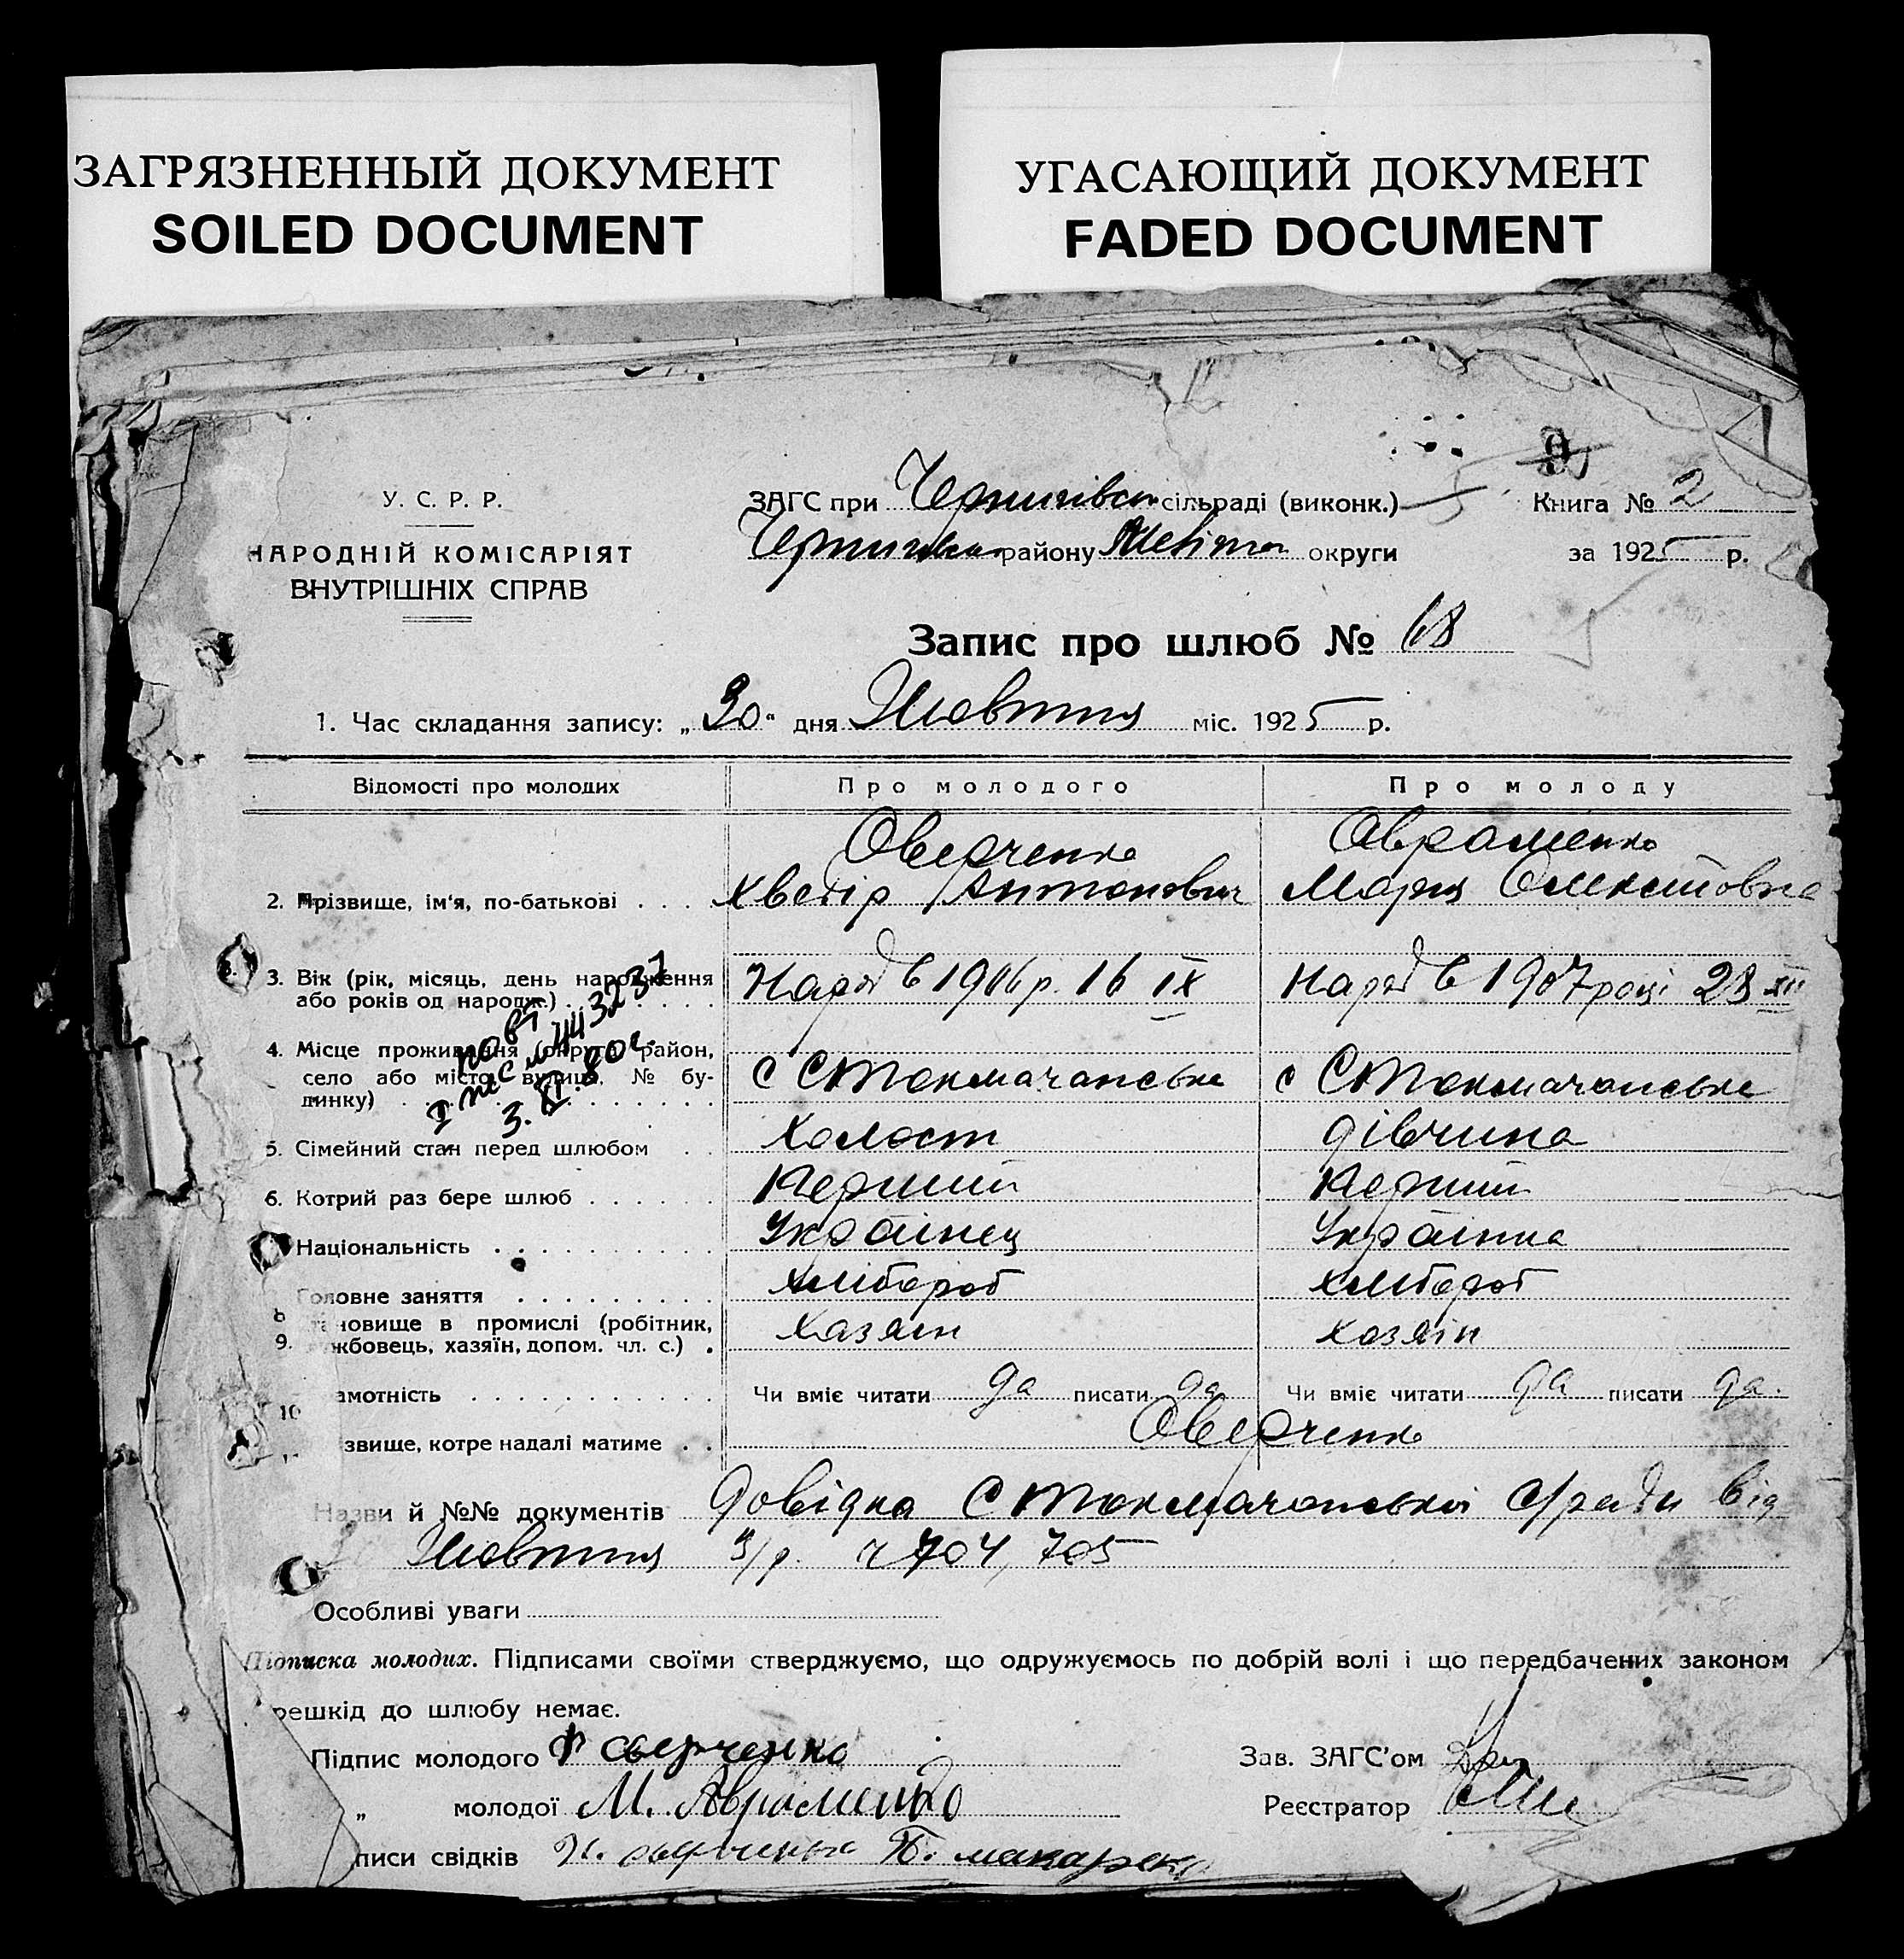 ЗАГРЯЗНЕННЫЙ ДОКУМЕНТ
SOILED DOCUMENT
УГАСАЮЩИЙ ДОКУМЕНТ
FADED DOCUMENT
9
У. С. Р. Р.
НАРОДНІЙ КОМІСАРІЯТ
ВНУТРІШНІХ СПРАВ
ЗАГС при Чернигівськ сільраді (виконк.)
району округи
Книга № 2
за 1925 р.
Запис про шлюб № 68
1. Час складання запису: „30“ дня Жовтня міс. 1925 р.
Відомості про молодих Про молодого Про молоду
Оверченко Авраменко
2. Прізвище, ім'я, по-батькові . . . Хведір Антонович Мария Олексіївна
3. Вік (рік, місяць, день народження
або років од народж.) . . . . . Народ в 1906 р. 16 IX Народ в 1907 році 28 XII
4. Місце проживання (округа, район,
село або місто, вулиця, № бу-
динку) . . . . . . . с Стокмачанське с Стокмачанське
повт
3. XI. 80 г.
5. Сімейний стан перед шлюбом . . Холост дівчина
6. Котрий раз бере шлюб . . . . . Перший Перший
Національність . . . . . . . . . Українец Українка
8 Головне заняття . . . . . . . . . хлібороб хлібороб
9. становище в промислі (робітник,
жбовець, хазяїн, допом. чл. с.) . Хазяін хазяін
10 амотність . . . . . . . . . . Чи вміє читати да писати да Чи вміє читати да писати да.
звище, котре надалі матиме . . Оверченко
Назви й №№ документів Довідка Стокмачанської с/ради від
Жовтня ч 704, 705
Особливі уваги
Підписка молодих. Підписами своїми стверджуємо, що одружуємось по добрій волі і що передбачених законом
решкід до шлюбу немає.
Підпис молодого Ф Оверченко Зав. ЗАГС'ом
„ молодої М. Авраменко Реєстратор
писи свідків П. макаренко